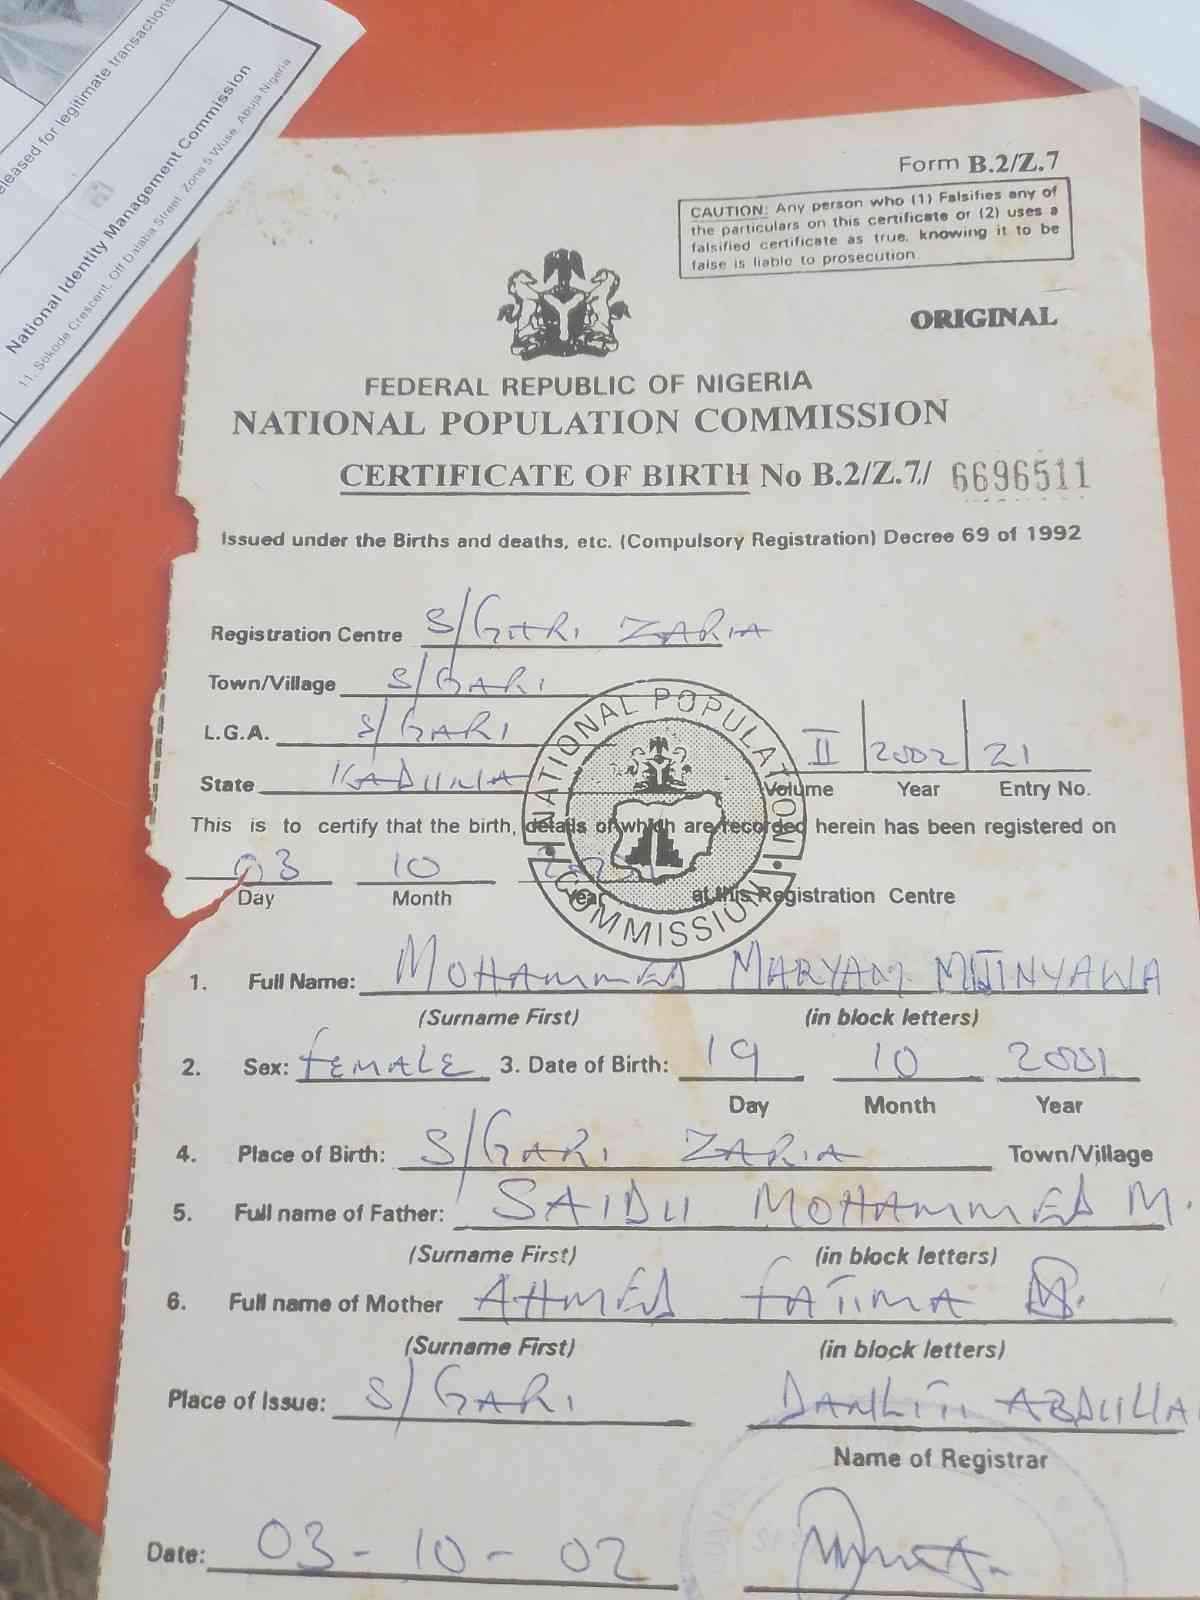 eleased for legitimate transactions
National Identity Management Commission
11, Sokode Crescent, Off Dalaba Street, Zone 5 Wuse, Abuja Nigeria
Form B.2/Z.7
CAUTION: Any person who (1) Falsifies any of
the particulars on this certificate or (2) uses a
falsified certificate as true, knowing it to be
false is liable to prosecution.
ORIGINAL
FEDERAL REPUBLIC OF NIGERIA
NATIONAL POPULATION COMMISSION
CERTIFICATE OF BIRTH No B.2/Z.7/ 6696511
Issued under the Births and deaths, etc. (Compulsory Registration) Decree 69 of 1992
Registration Centre S/GARI ZARIA
Town/Village S/GARI
L.G.A. S/GARI
State KADUNA
II 2002 21
Volume Year Entry No.
NATIONAL POPULATION COMMISSION
This is to certify that the birth, details of which are recorded herein has been registered on
03 10
Day Month Year at this Registration Centre
1. Full Name: MOHAMMED MARYAM MIJINYAWA
(Surname First) (in block letters)
2. Sex: FEMALE 3. Date of Birth: 19 10 2001
Day Month Year
4. Place of Birth: S/GARI ZARIA Town/Village
5. Full name of Father: SAIDU MOHAMMED M.
(Surname First) (in block letters)
6. Full name of Mother AHMED FATIMA M.
(Surname First) (in block letters)
Place of Issue: S/GARI
Name of Registrar
Date: 03-10-02